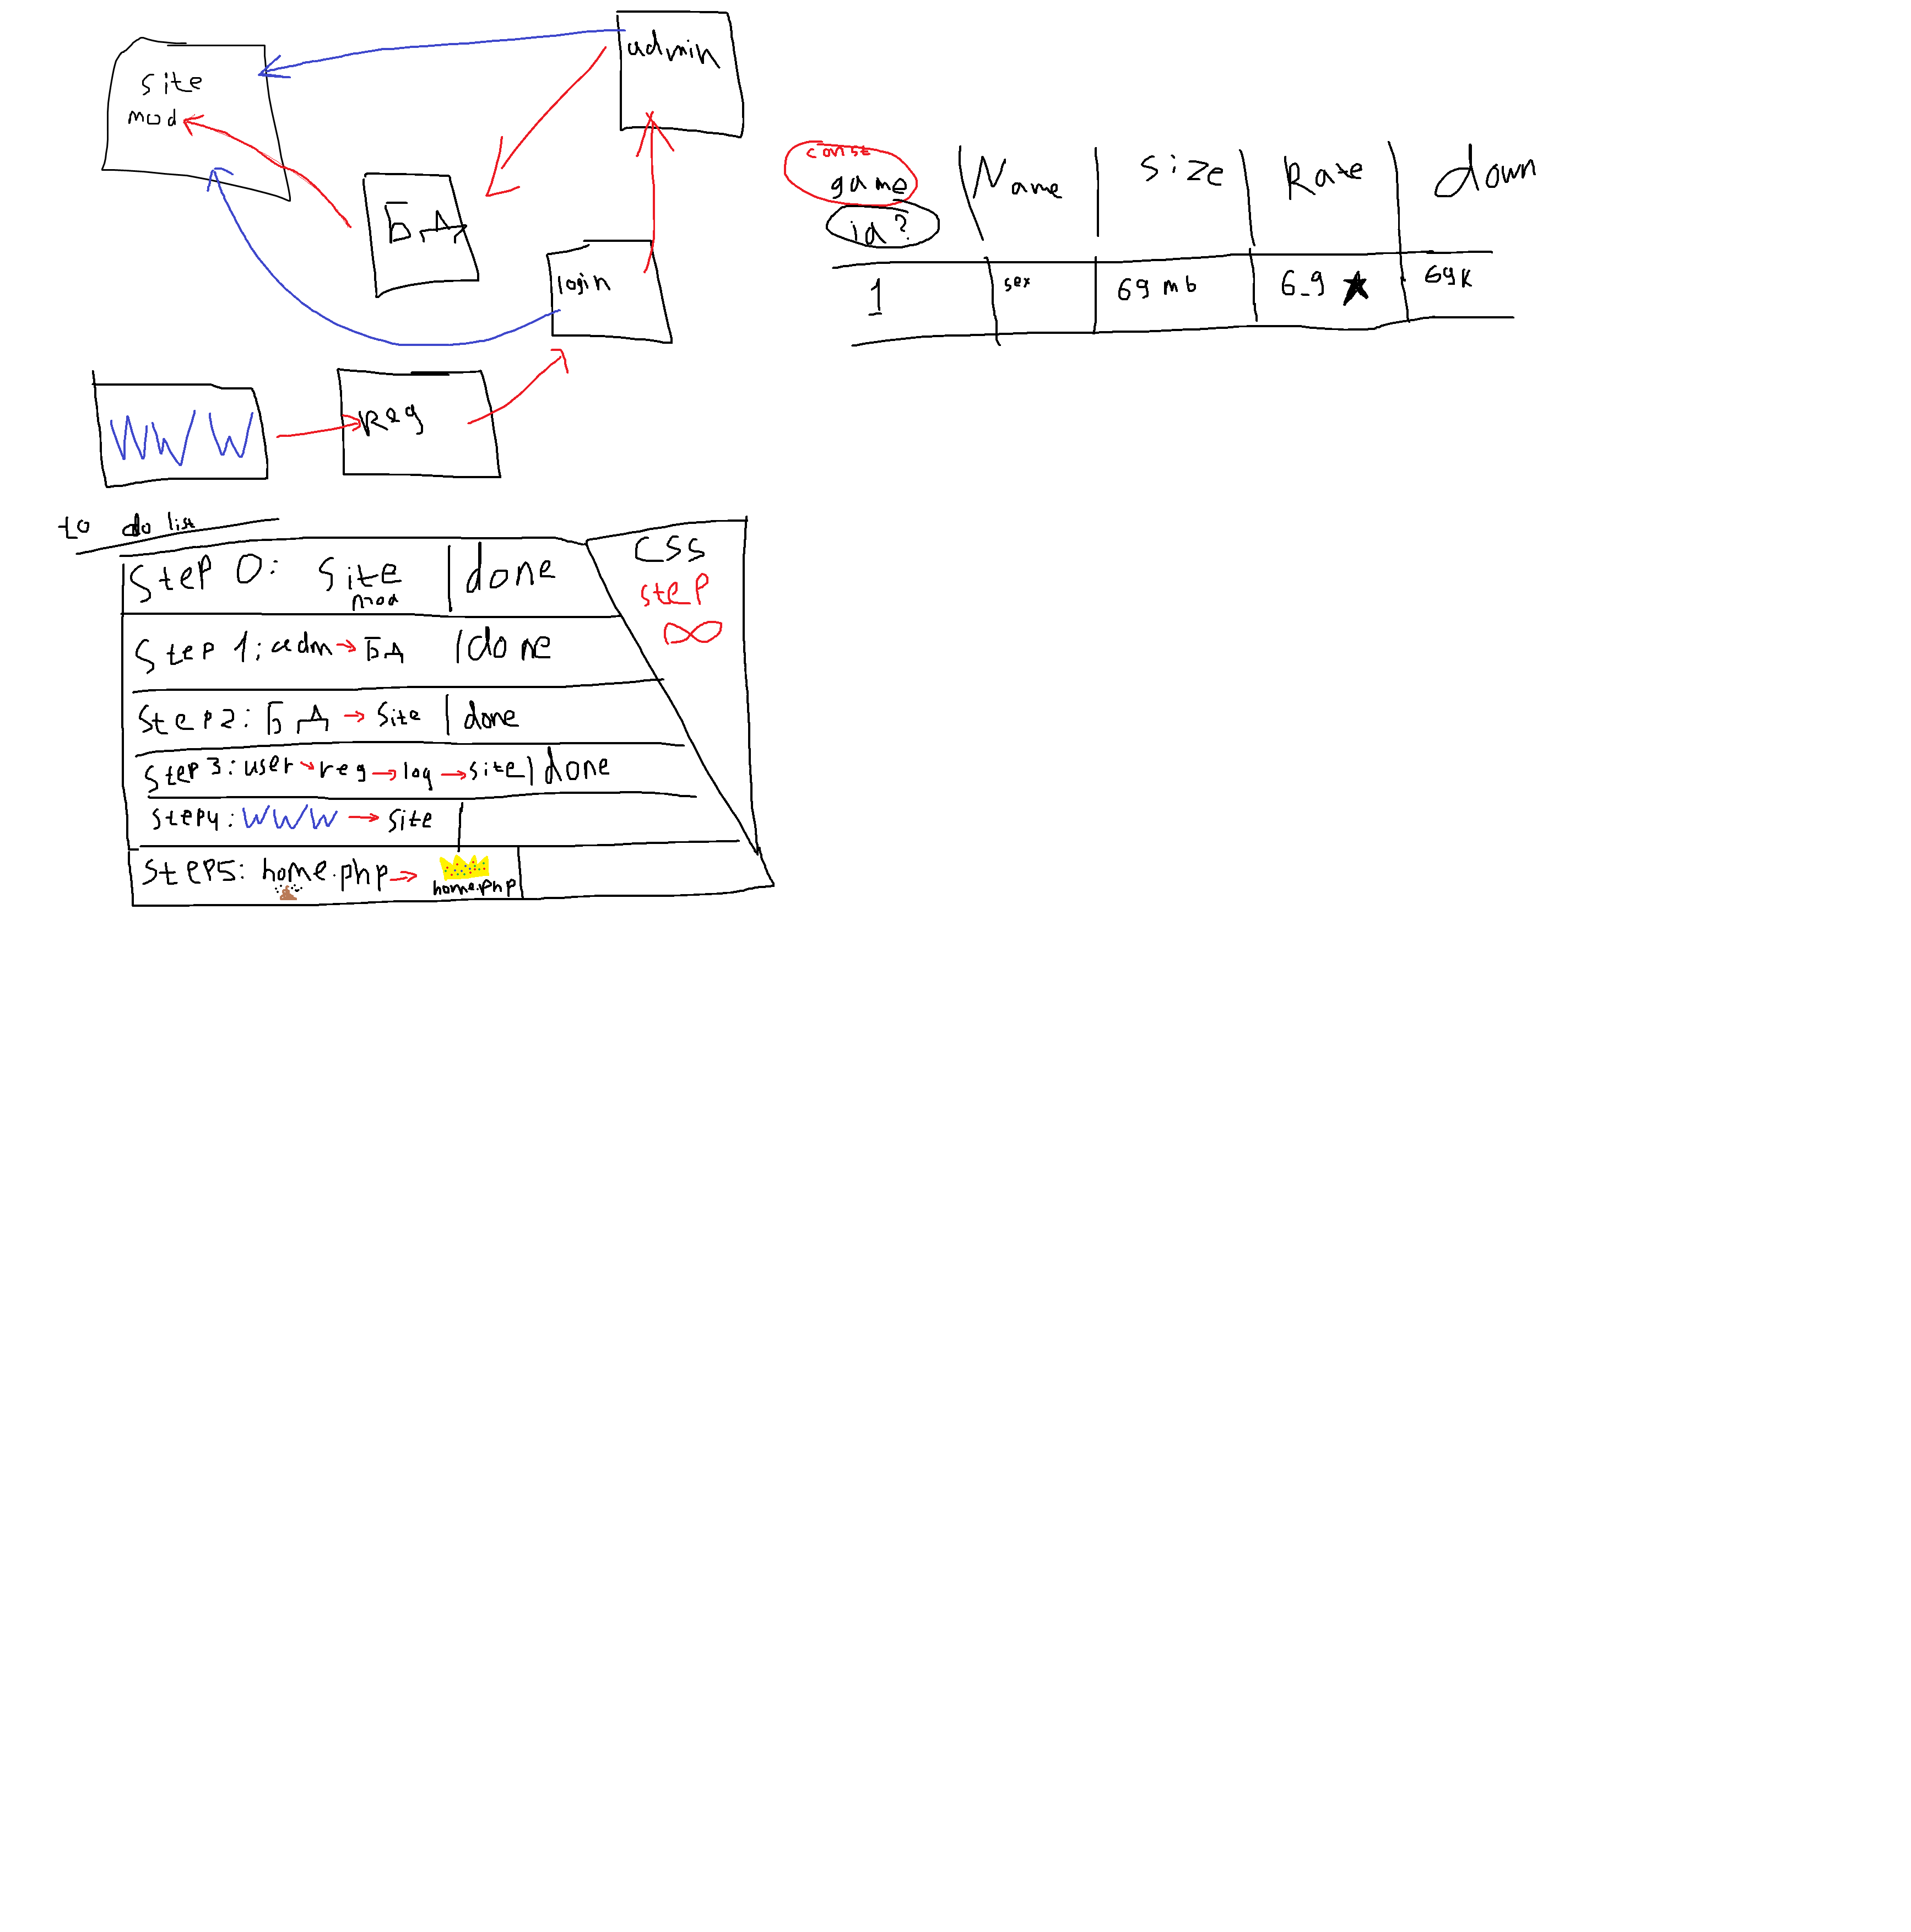 admin
site
mod
БД
login
WWW
Reg
const
game
id?
Name
size
Rate
down
1
sex
69 mb
6_9 ★
69k
to do list
Step 0: Site
mod
done
CSS
step
∞
Step 1: adm → БД | done
Step 2: БД → Site | done
Step 3: user → reg → log → site | done
step4: WWW → site
Step5: home.php →
home.php